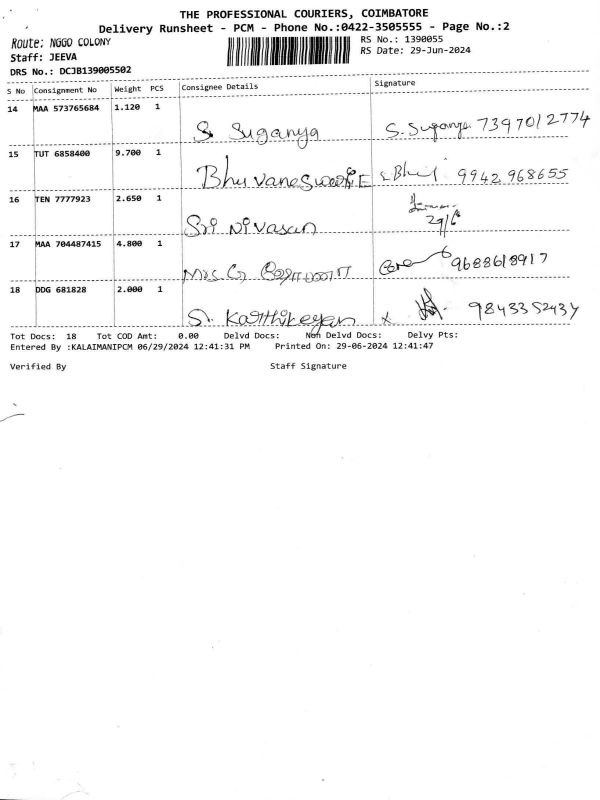 THE PROFESSIONAL COURIERS, COIMBATORE
Delivery Runsheet - PCM - Phone No.:0422-3505555 - Page No.:2
Route: NGGO COLONY
RS No.: 1390055
Staff: JEEVA
RS Date: 29-Jun-2024
DRS No.: DCJB139005502
S No Consignment No Weight PCS Consignee Details Signature
14 MAA 573765684 1.120 1 S. Suganya S. Suganya 7397012774
15 TUT 6858400 9.700 1 Bhuvaneswari E 9942 968655
16 TEN 7777923 2.650 1 Sri Nivasan 29/6
17 MAA 704487415 4.800 1 Mrs G 9688618917
18 DDG 681828 2.000 1 S. Karthikeyan x 9843352434
Tot Docs: 18 Tot COD Amt: 0.00 Delvd Docs: Non Delvd Docs: Delvy Pts:
Entered By :KALAIMANIPCM 06/29/2024 12:41:31 PM Printed On: 29-06-2024 12:41:47
Verified By Staff Signature